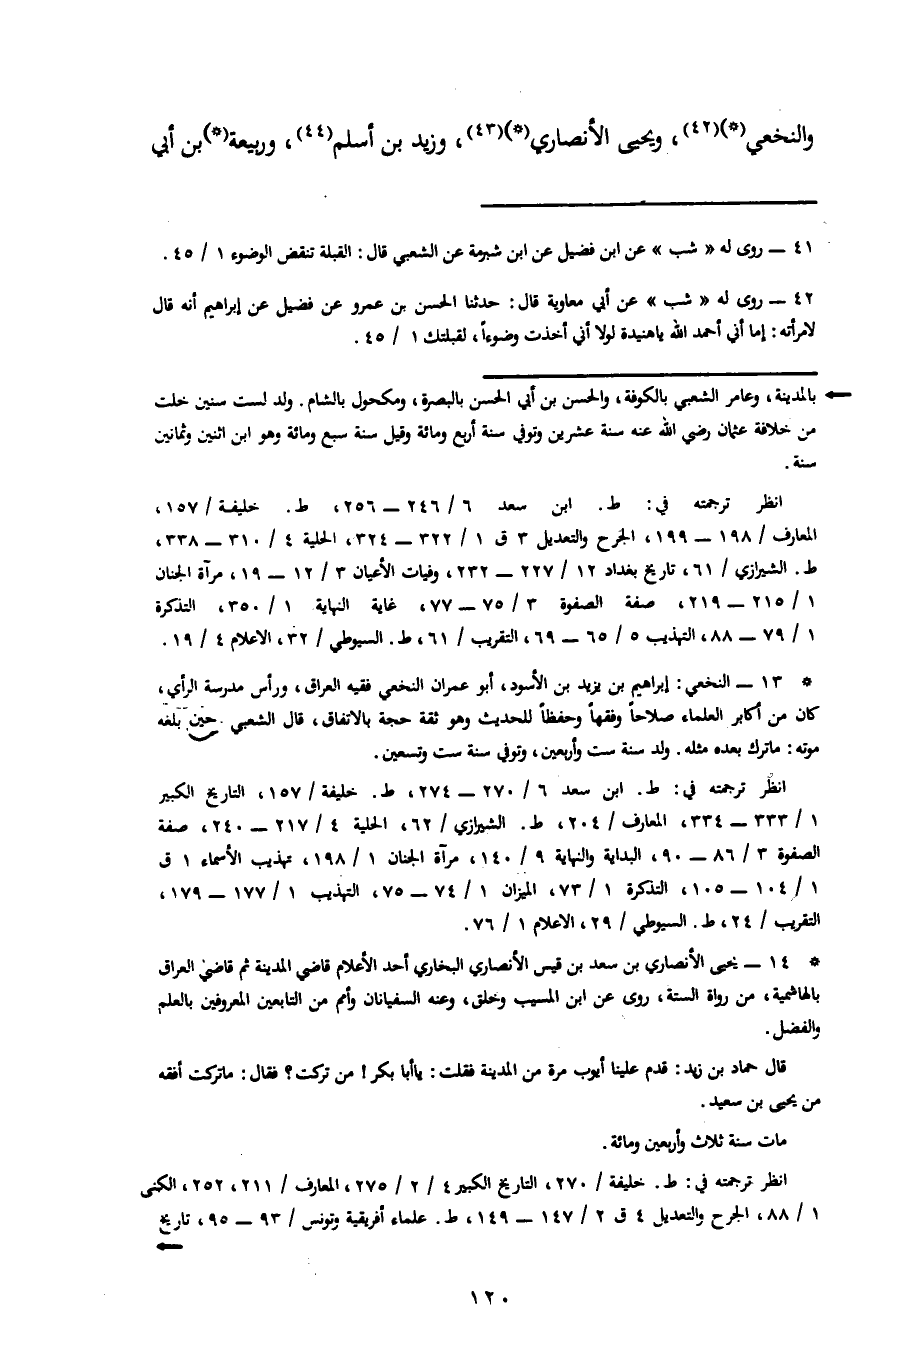 والنخعي(*)(٤٢)، ويحيى الأنصاري(*)(٤٣)، وزيد بن أسلم(٤٤)، وربيعة(*)بن أبي
٤١ ــ روى له « شب » عن ابن فضيل عن ابن شبرمة عن الشعبي قال: القبلة تنقض الوضوء ١ / ٤٥.
٤٢ ــ روى له « شب » عن أبي معاوية قال: حدثنا الحسن بن عمرو عن فضيل عن إبراهيم أنه قال
لامرأته: إما أني أحمد الله ياهنيدة لولا أني أخذت وضوءاً، لقبلتك ١ / ٤٥.
بالمدينة، وعامر الشعبي بالكوفة، والحسن بن أبي الحسن بالبصرة، ومكحول بالشام. ولد لست سنين خلت
من خلافة عثمان رضي الله عنه سنة عشرين وتوفي سنة أربع ومائة وقيل سنة سبع ومائة وهو ابن اثنين وثمانين
سنة.
انظر ترجمته في: ط. ابن سعد ٦ / ٢٤٦ ــ ٢٥٦، ط. خليفة / ١٥٧،
المعارف / ١٩٨ ــ ١٩٩، الجرح والتعديل ٣ ق ١ / ٣٢٢ ــ ٣٢٤، الحلية ٤ / ٣١٠ ــ ٣٣٨،
ط. الشيرازي / ٦١، تاريخ بغداد ١٢ / ٢٢٧ ــ ٢٣٢، وفيات الأعيان ٣ / ١٢ ــ ١٩، مرآة الجنان
١ / ٢١٥ ــ ٢١٩، صفة الصفوة ٣ / ٧٥ ــ ٧٧، غاية النهاية ١ / ٣٥٠، التذكرة
١ / ٧٩ ــ ٨٨، التهذيب ٥ / ٦٥ ــ ٦٩، التقريب / ٦١، ط. السيوطي / ٣٢، الاعلام ٤ / ١٩.
* ١٣ ــ النخعي: إبراهيم بن يزيد بن الأسود، أبو عمران النخعي فقيه العراق، ورأس مدرسة الرأي،
كان من أكابر العلماء صلاحاً وفقهاً وحفظاً للحديث وهو ثقة حجة بالاتفاق، قال الشعبي حين بلغه
موته: ماترك بعده مثله. ولد سنة ست وأربعين، وتوفي سنة ست وتسعين.
انظر ترجمته في: ط. ابن سعد ٦ / ٢٧٠ ــ ٢٧٤، ط. خليفة / ١٥٧، التاريخ الكبير
١ / ٣٣٣ ــ ٣٣٤، المعارف / ٢٠٤، ط. الشيرازي / ٦٢، الحلية ٤ / ٢١٧ ــ ٢٤٠، صفة
الصفوة ٣ / ٨٦ ــ ٩٠، البداية والنهاية ٩ / ١٤٠، مرآة الجنان ١ / ١٩٨، تهذيب الأسماء ١ ق
١ / ١٠٤ ــ ١٠٥، التذكرة ١ / ٧٣، الميزان ١ / ٧٤ ــ ٧٥، التهذيب ١ / ١٧٧ ــ ١٧٩،
التقريب / ٢٤، ط. السيوطي / ٢٩، الاعلام ١ / ٧٦.
* ١٤ ــ يحيى الأنصاري بن سعد بن قيس الأنصاري البخاري أحد الأعلام قاضي المدينة ثم قاضي العراق
بالهاشمية، من رواة الستة، روى عن ابن المسيب وخلق، وعنه السفيانان وأمم من التابعين المعروفين بالعلم
والفضل.
قال حماد بن زيد: قدم علينا أيوب مرة من المدينة فقلت: ياأبا بكر! من تركت؟ فقال: ماتركت أفقه
من يحيى بن سعيد.
مات سنة ثلاث وأربعين ومائة.
انظر ترجمته في: ط. خليفة / ٢٧٠، التاريخ الكبير ٤ / ٢ / ٢٧٥، المعارف / ٢١١، ٢٥٢، الكنى
١ / ٨٨، الجرح والتعديل ٤ ق ٢ / ١٤٧ ــ ١٤٩، ط. علماء أفريقية وتونس / ٩٣ ــ ٩٥، تاريخ
١٢٠